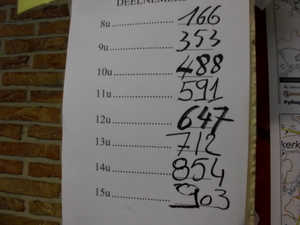 8u 166
9u 353
10u 488
11u 591
12u 647
13u 712
14u 854
15u 903